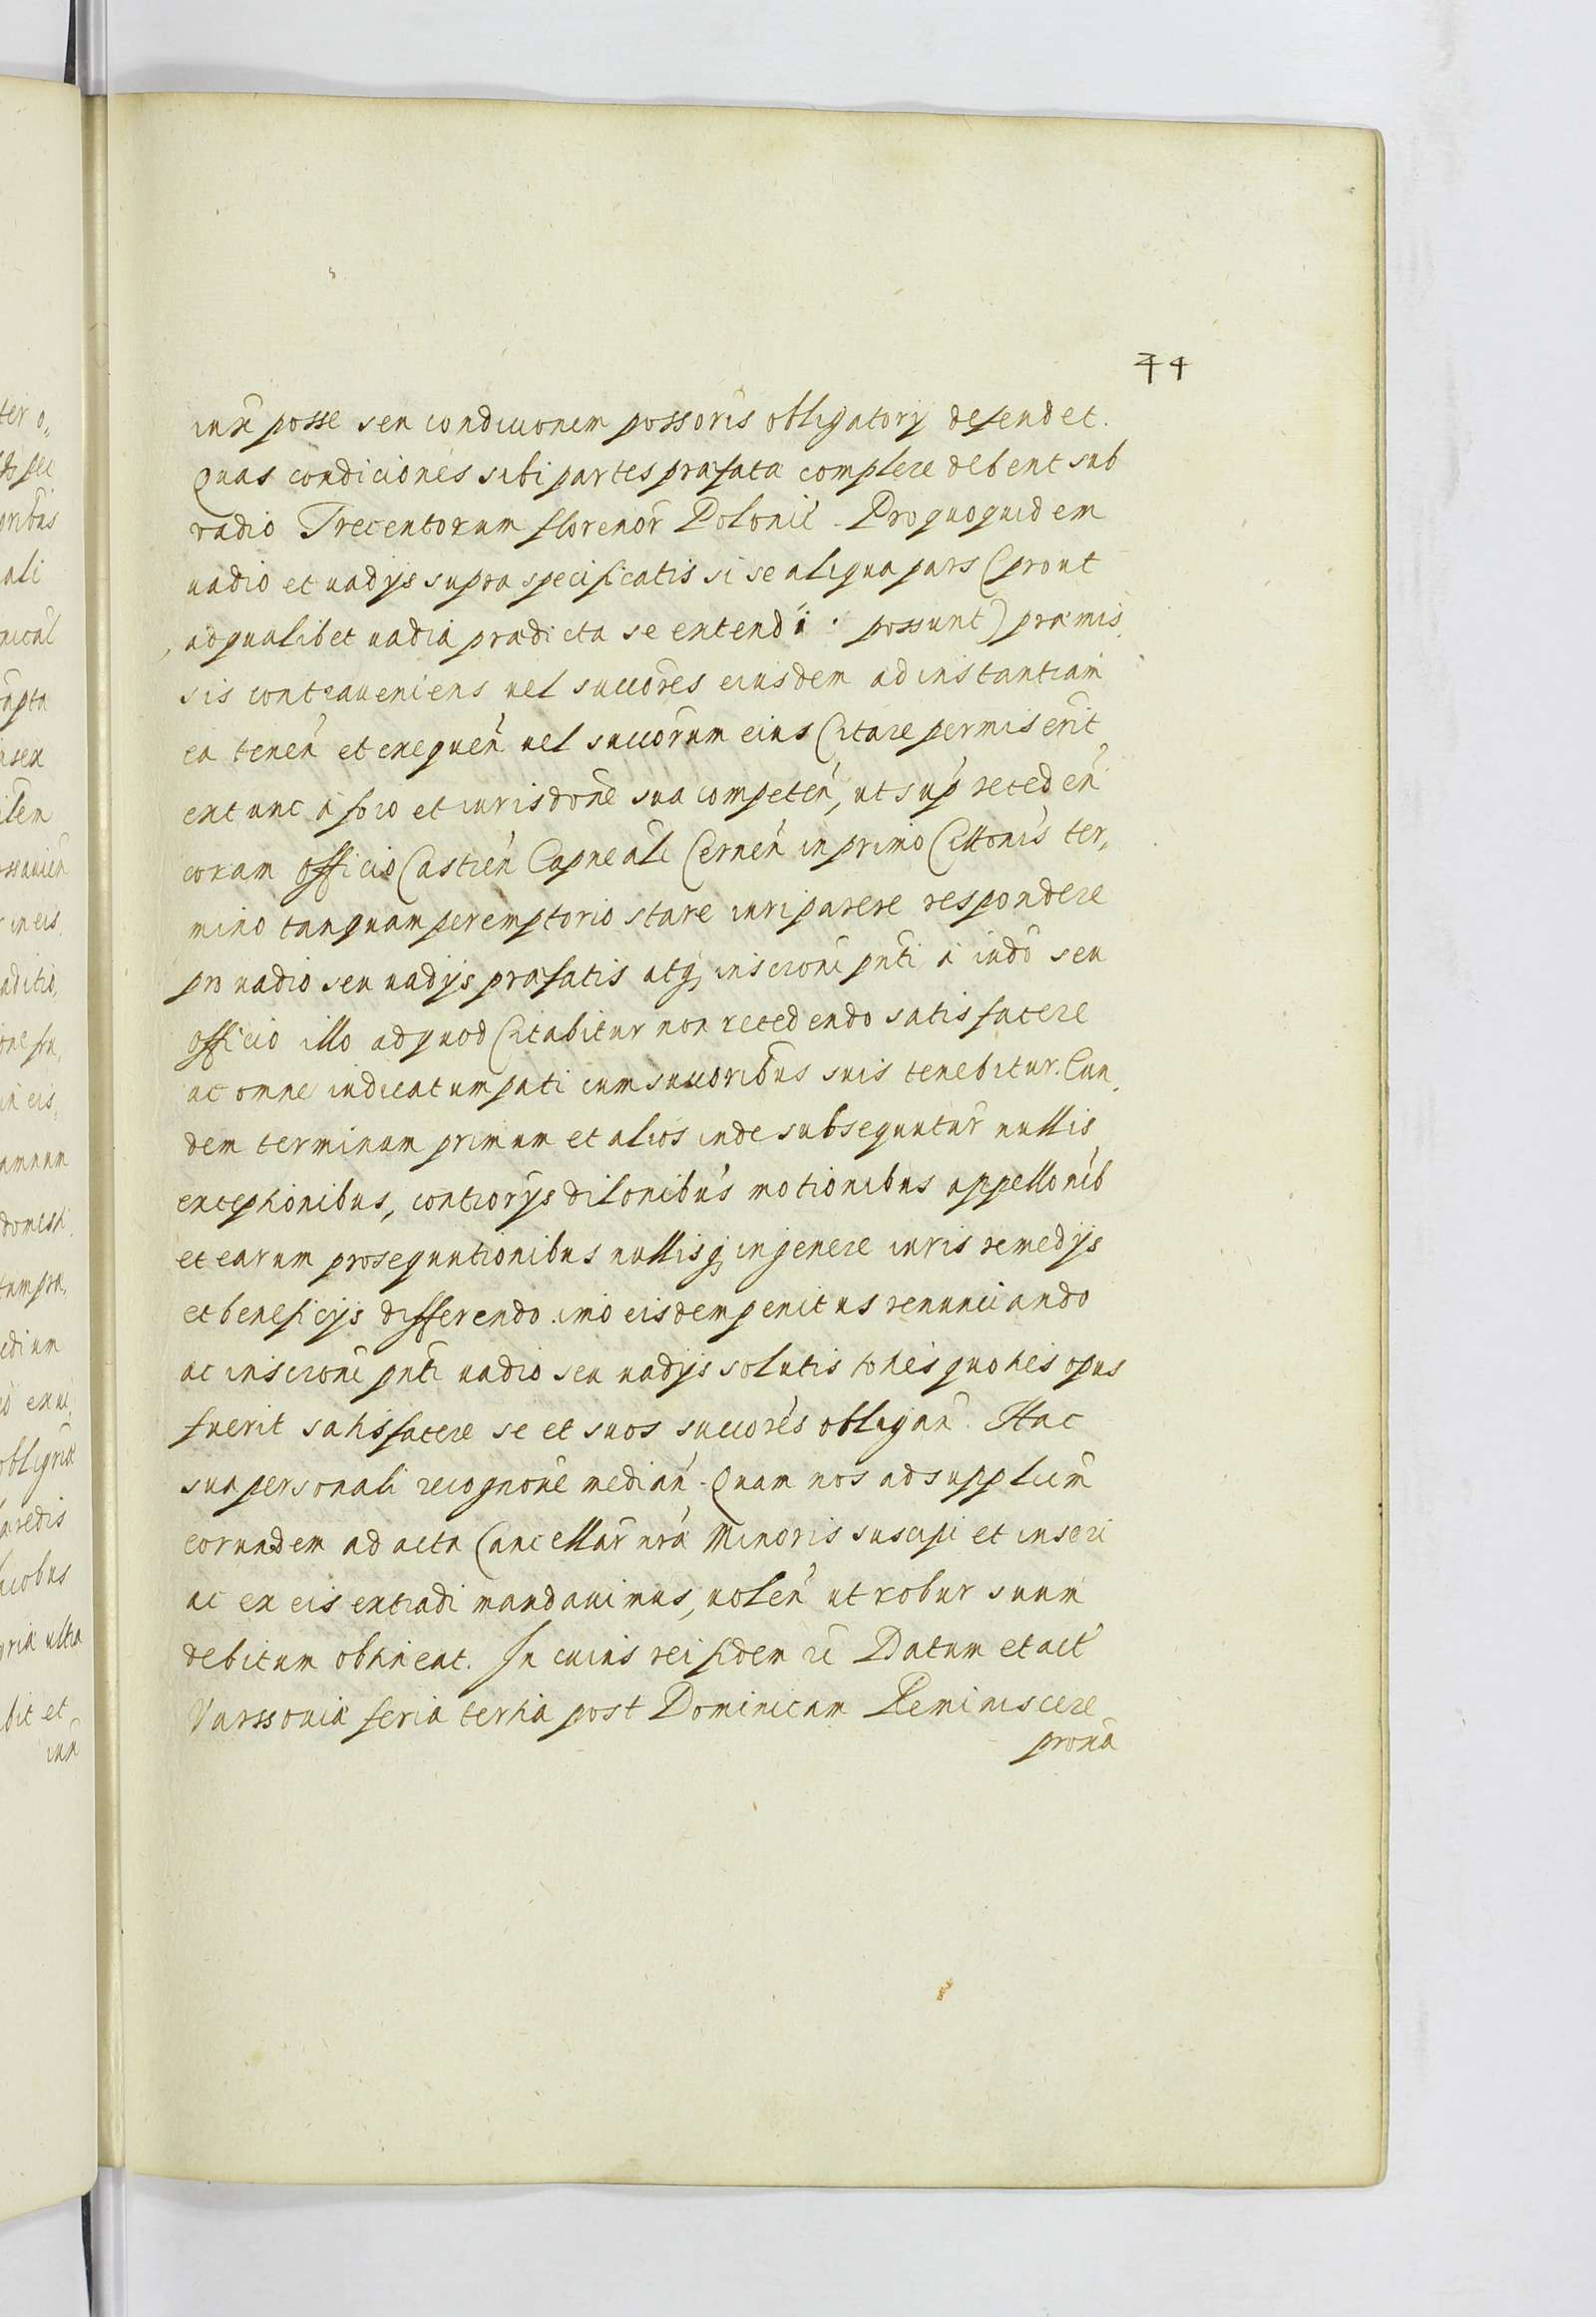 44
iux posse seu condicionem possoris obligatorij defendet.
Quas condiciones sibi partes præfatæ complere debent sub
vadio Trecentorum florenor Polonic. Pro quoquidem
uadio et uadijs supra specificatis si se aliqua pars (prout
ad qualibet uadia prædicta se extendi possunt) præmis,
sis contraueniens uel succores eiusdem ad instantiam
ea tenen et exequen uel succorum eius Citare permiserit
extunc à foro et iurisdone sua competen, ut sup receden
coram officio Castren Capneali Cernen in primo Cittonis ter,
mino tanquam peremptorio stare iuri parere respondere
pro uadio seu uadijs præfatis atq inscrone pnti à iudo seu
officio illo ad quod Citabitur non recedendo satisfacere
ac omne iudicatum pati cum succoribus suis tenebitur. Eun,
dem terminum primum et alios inde subsequutur nullis
exceptionibus, controrijs dilonibus motionibus appellonib
et earum prosequutionibus nullisq in genere iuris remedijs
et beneficijs differendo imo eisdem penitus renunciando
ac inscrone pnti uadio seu uadijs solutis toties quoties opus
fuerit satisfacere se et suos succores obligan. Hac
sua personali recognone median. Quam nos ad supplicem
eorundem ad acta Cancellar nræ Minoris suscipi et inseri
ac ex eis extradi mandauimus, uolen ut robur suum
debitum obtineat. In cuius rei fidem rc Datum et act
Varssouiæ feria tertia post Dominicam Reminiscere
proxa